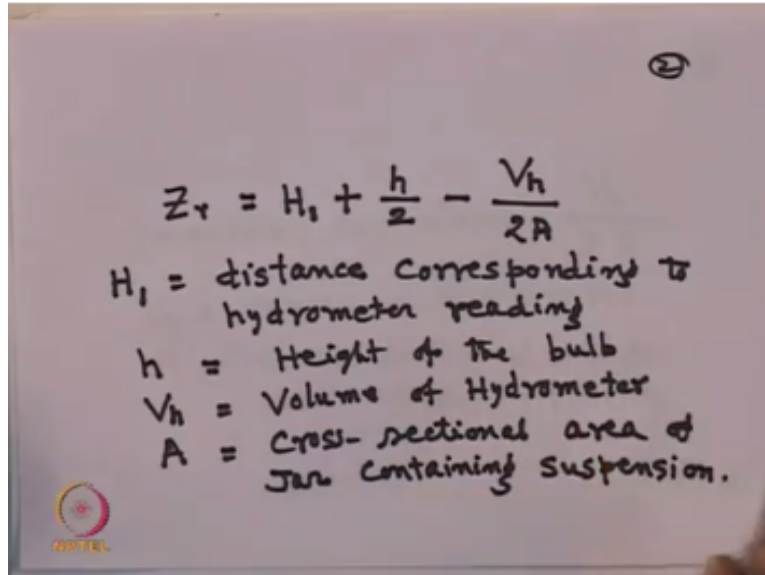 ②
Zr = H₁ + h/2 - Vh/2A
H₁ = distance corresponding to
hydrometer reading
h = Height of the bulb
Vh = Volume of Hydrometer
A = Cross-sectional area of
Jar containing suspension.
NPTEL